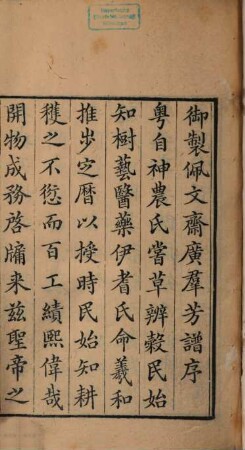 御製佩文齋廣羣芳譜序
粵自神農氏嘗草辨穀民始
知樹藝醫藥伊耆氏命羲和
推步定曆以授時民始知耕
穫之不愆而百工績熙偉哉
開物成務啓牖来兹聖帝之